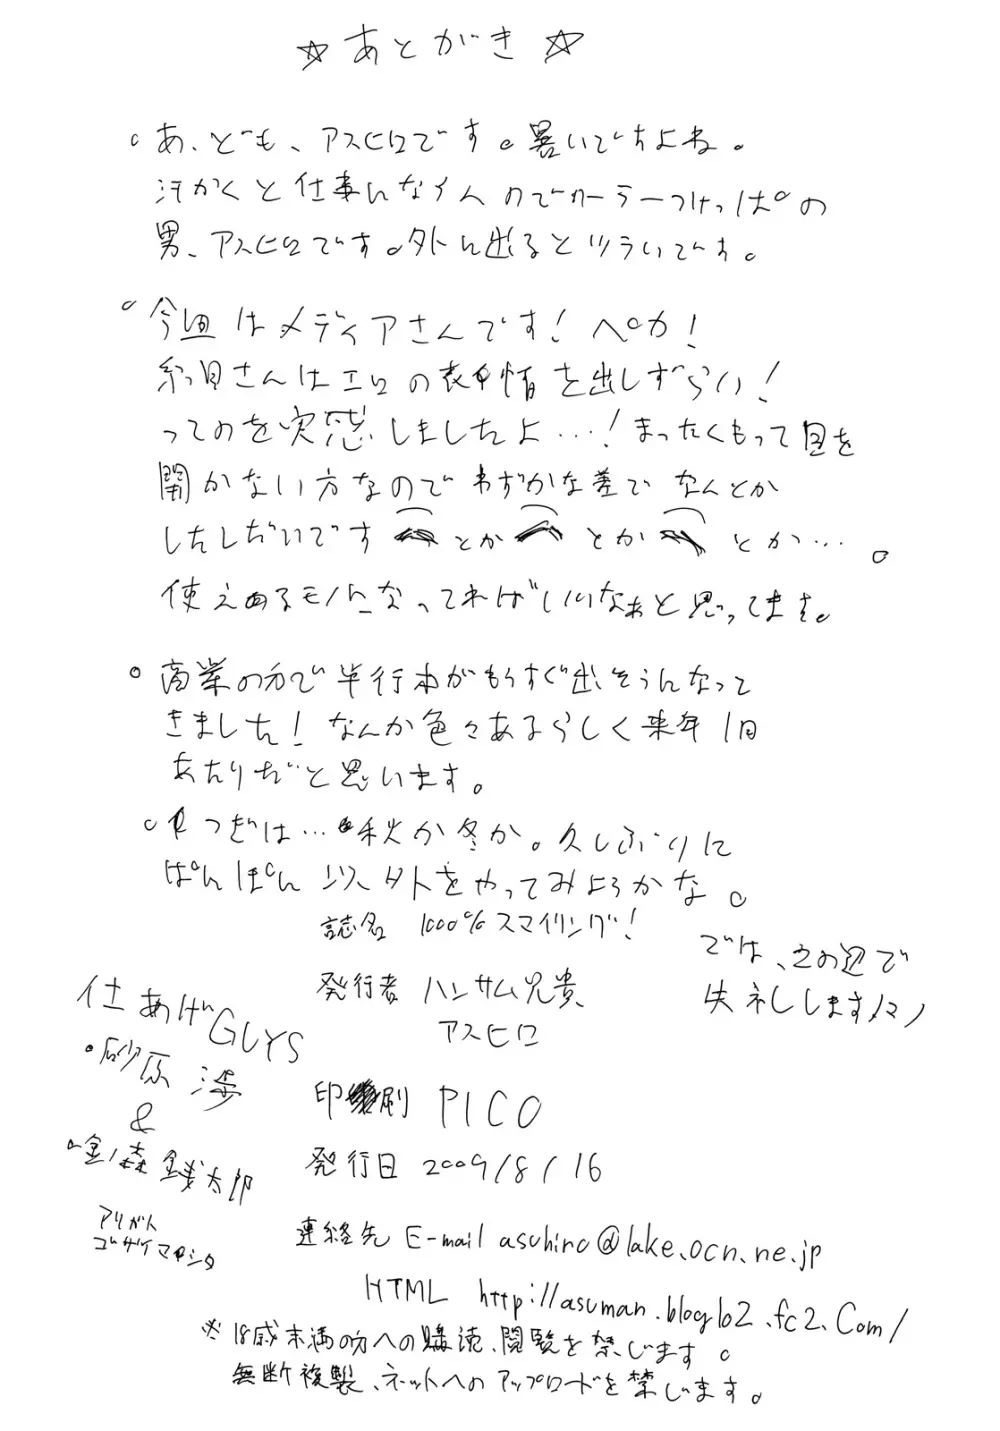 ☆あとがき☆
。あ、ども、アスヒロです。暑いですよね。
汗かくと仕事になんないのでクーラーつけっぱの
男、アスヒロです。外に出るとツライです。
。今回はメディアさんです！ペカ！
糸目さんはエロの表情を出しずらい！
ってのを実感しましたよ…！まったくもって目を
開かない方なのでわずかな差でなんとか
したしだいです とか とか とか…。
使えるモノになってればいいなぁと思ってます。
。商業の方で単行本がもうすぐ出そうになって
きました！なんか色々あるらしく来年1月
あたりだと思います。
。つぎは…秋か冬か。久しぶりに
ぱんぽん以外をやってみようかな。
誌名 1000%スマイリング！
では、この辺で
失礼します
発行者 ハンサム兄貴
アスヒロ
仕あげGUYS
・砂原渉
&
・金ノ森銭太郎
アリガト
ゴザイマシタ
印刷 PICO
発行日 2009/8/16
連絡先 E-mail asuhiro@lake.ocn.ne.jp
HTML http://asuman.blog102.fc2.com/
※18歳未満の方への購読、閲覧を禁じます。
無断複製、ネットへのアップロードを禁じます。